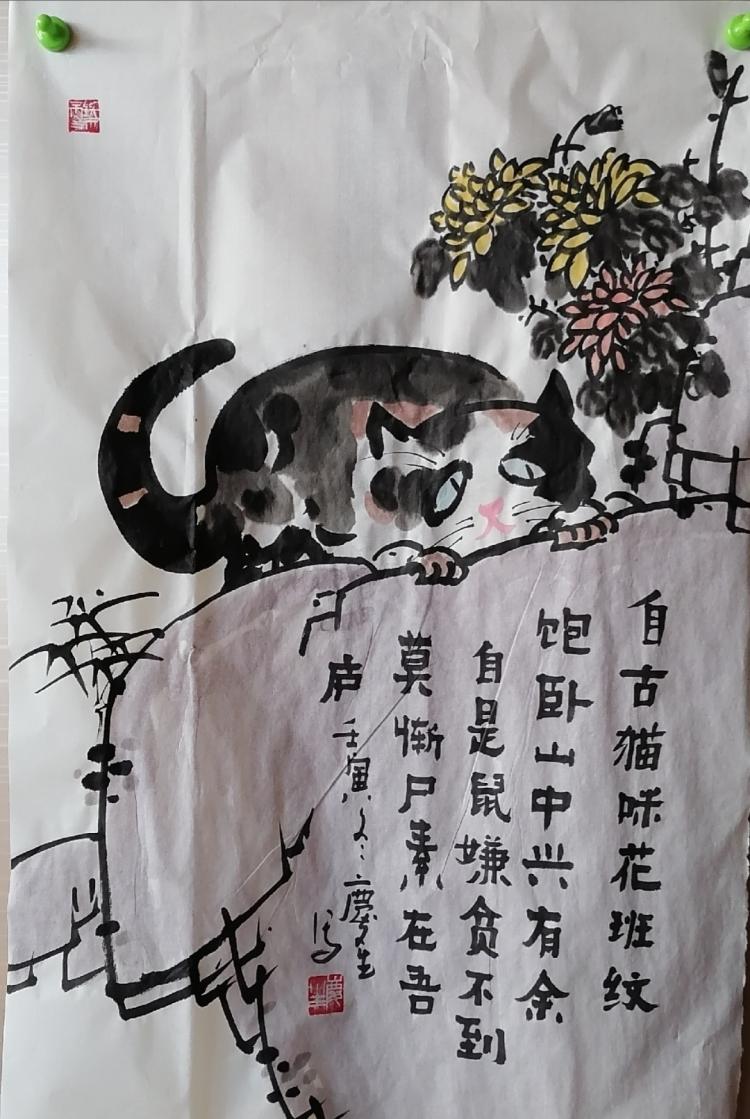 自古猫咪花班纹
饱卧山中兴有余
自是鼠嫌贫不到
莫惭尸素在吾
庐 壬寅冬慶生
写